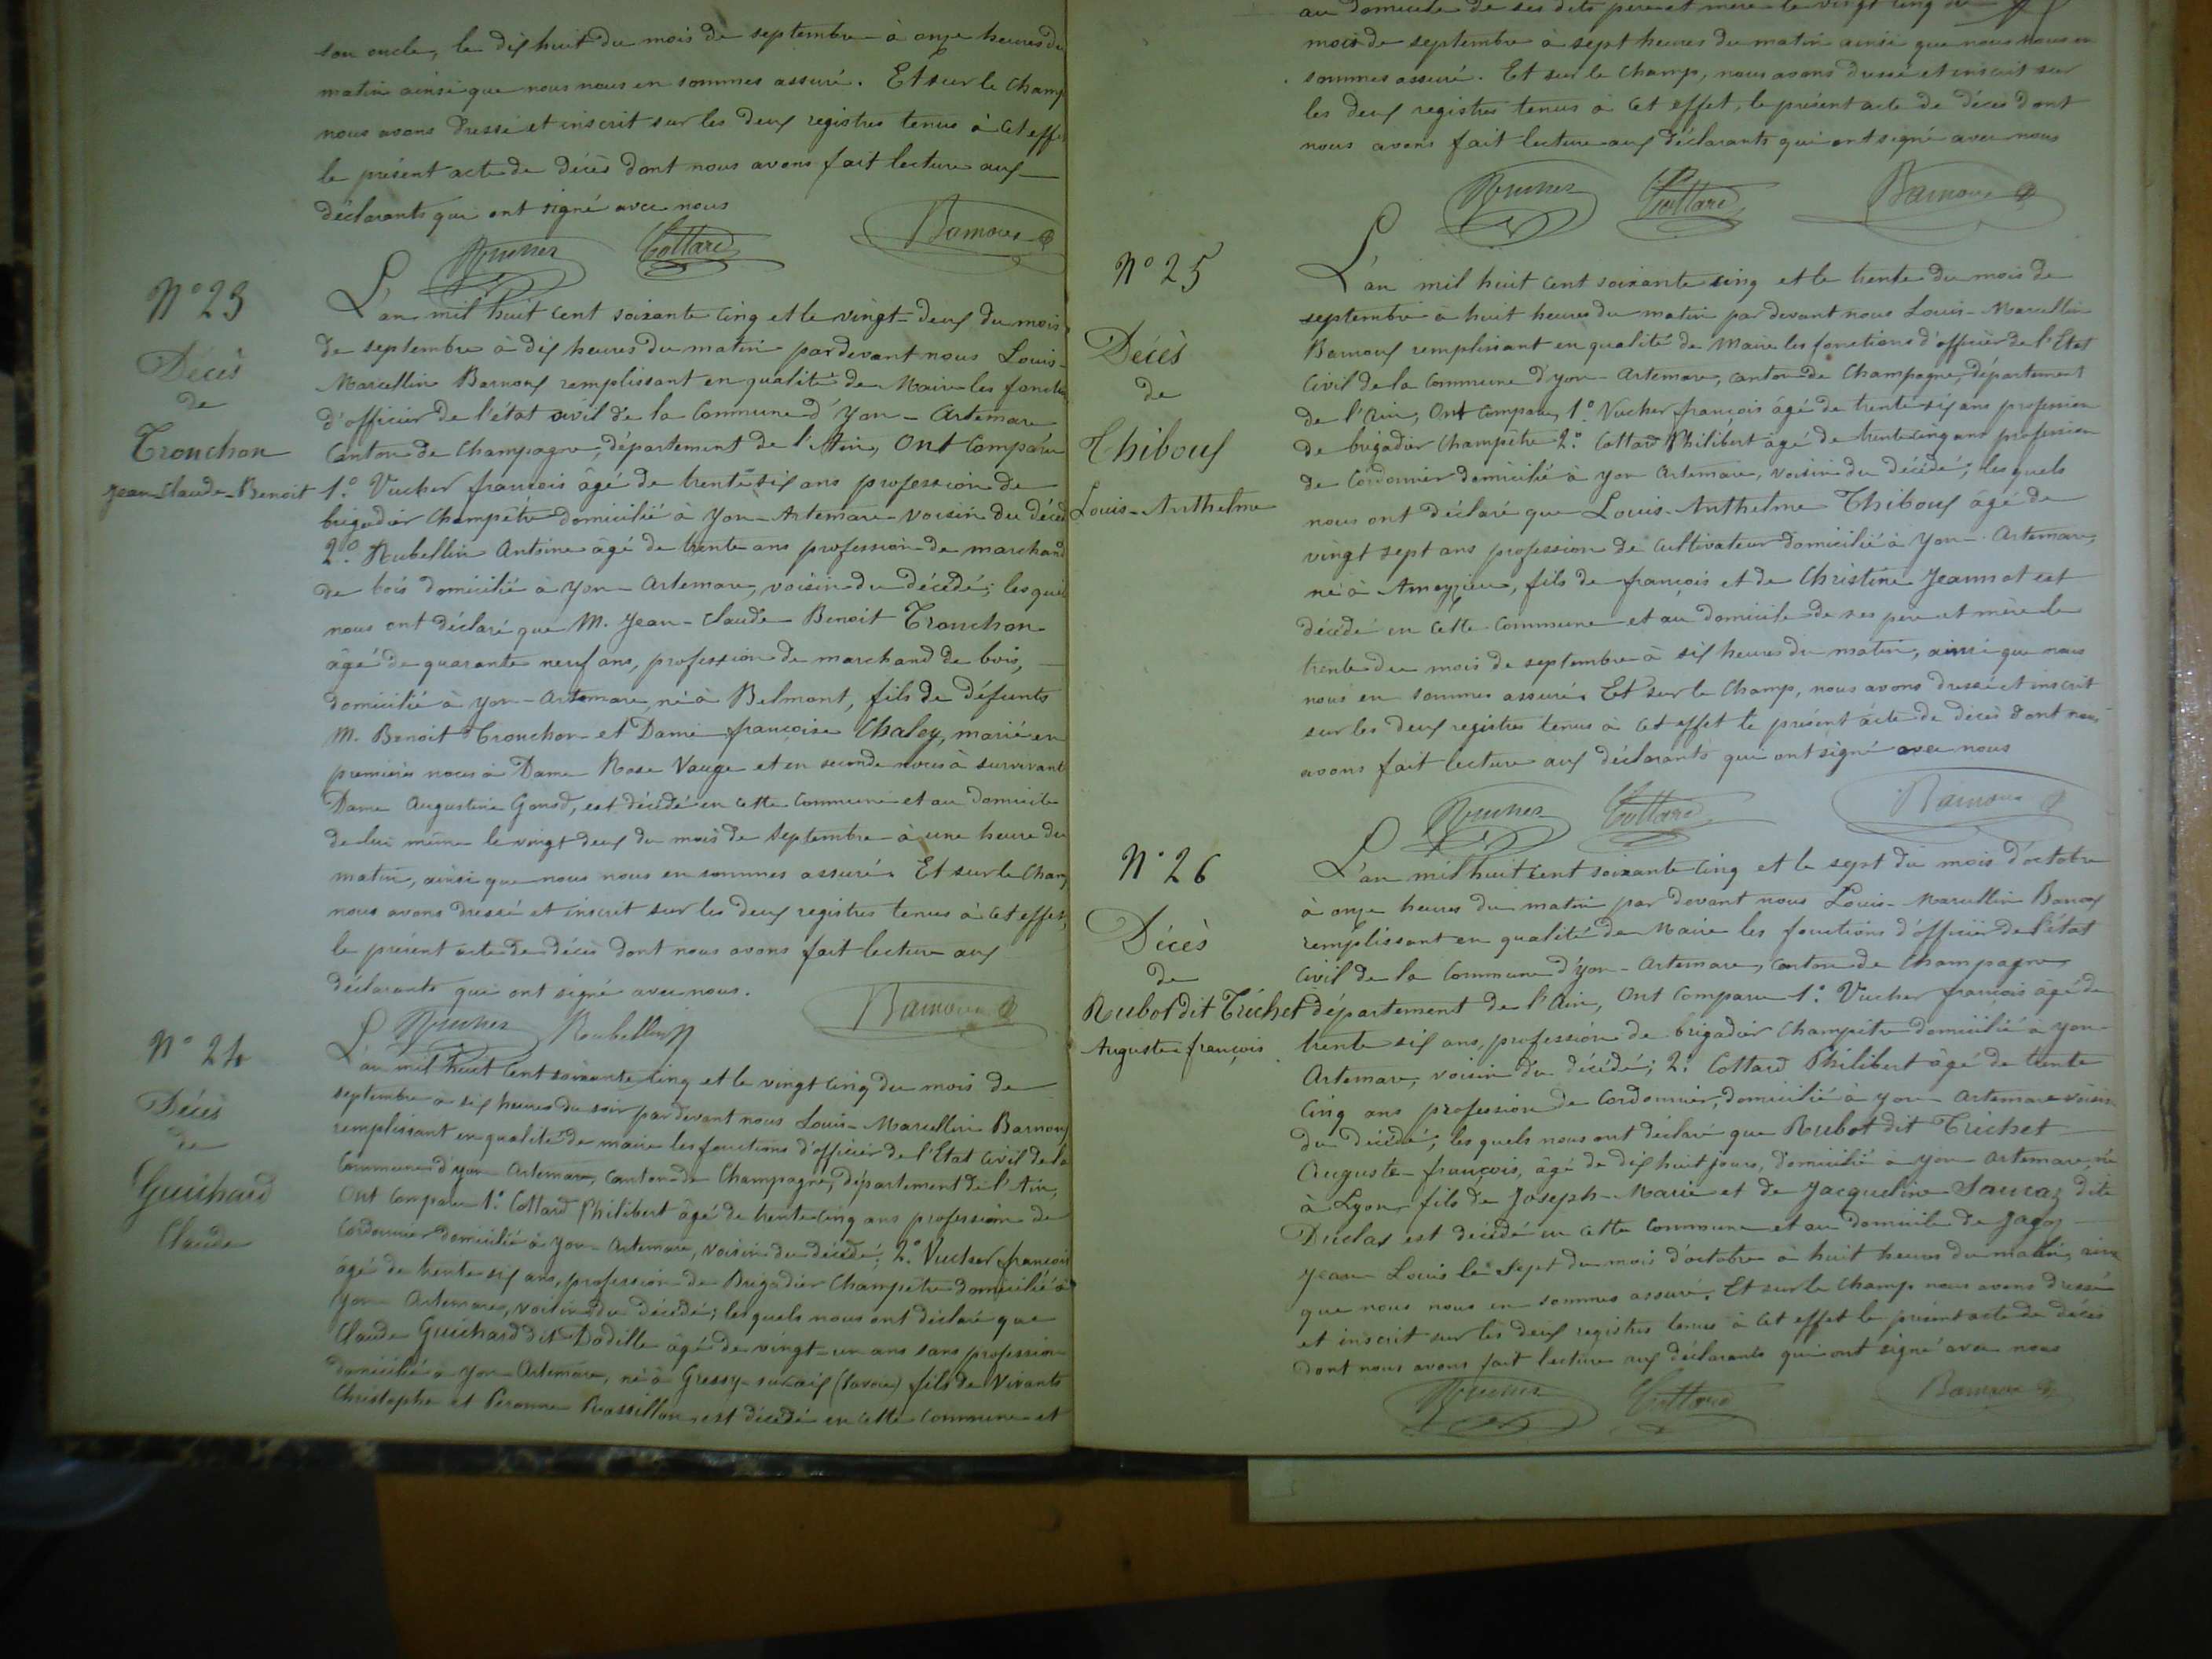 son oncle, le dix huit du mois de septembre à onze heures du
matin ainsi que nous nous en sommes assuré. Et sur le champ
nous avons dressé et inscrit sur les deux registres tenus à cet effet
le présent acte de décès dont nous avons fait lecture aux
déclarants qui ont signé avec nous
Vucher Cottard Barnoux
N° 23
Décès
de
Tronchon
Jean-Claude-Benoit
L'an mil huit cent soixante cinq et le vingt-deux du mois
de septembre à dix heures du matin par devant nous Louis-
Marcellin Barnoux remplissant en qualité de Maire les fonctions
d'officier de l'état civil de la Commune d'Yon-Artemare
Canton de Champagne, département de l'Ain, Ont Comparu
1.° Vucher françois âgé de trente six ans profession de
brigadier Champêtre domicilié à Yon-Artemare voisin du décédé
2.° Rubellin Antoine âgé de trente ans profession de marchand
de bois domicilié à Yon-Artemare, voisin du décédé; lesquels
nous ont déclaré que M. Jean-Claude Benoit Tronchon
âgé de quarante neuf ans, profession de marchand de bois,
domicilié à Yon-Artemare, né à Belmont, fils de défunts
M. Benoit Tronchon et Dame françoise Chaley, marié en
premières noces à Dame Rose Vauge et en seconde noces à survivante
Dame Augustine Gonod, est décédé en cette Commune et au domicile
de lui même le vingt deux du mois de septembre à une heure du
matin, ainsi que nous nous en sommes assuré. Et sur le champ
nous avons dressé et inscrit sur les deux registres tenus à cet effet,
le présent acte de décès dont nous avons fait lecture aux
déclarants qui ont signé avec nous.
Vucher Rubellin Barnoux
N° 24
Décès
de
Guichard
Claude
L'an mil huit cent soixante cinq et le vingt cinq du mois de
septembre à six heures du soir par devant nous Louis-Marcellin Barnoux
remplissant en qualité de maire les fonctions d'officier de l'Etat Civil de la
Commune d'Yon-Artemare, Canton de Champagne, département de l'Ain,
Ont Comparu 1.° Cottard Philibert âgé de trente cinq ans profession de
Cordonnier domicilié à Yon-Artemare, voisin du décédé; 2.° Vucher françois
âgé de trente six ans, profession de Brigadier Champêtre domicilié à
Yon Artemare, voisin du décédé; lesquels nous ont déclaré que
Claude Guichard dit Dodille âgé de vingt-un ans sans profession
domicilié à Yon-Artemare, né à Gressy-sur-aix (Savoie) fils de vivants
Christophe et Peronne Rassillon, est décédé en cette Commune et
au domicile de ses dits père et mère le vingt cinq du
mois de septembre à sept heures du matin ainsi que nous nous en
sommes assuré. Et sur le champ, nous avons dressé et inscrit sur
les deux registres tenus à cet effet, le présent acte de décès dont
nous avons fait lecture aux déclarants qui ont signé avec nous
Vucher Cottard Barnoux
N° 25
Décès
de
Thiboux
Louis-Anthelme
L'an mil huit cent soixante cinq et le trente du mois de
septembre à huit heures du matin par devant nous Louis-Marcellin
Barnoux remplissant en qualité de Maire les fonctions d'officier de l'Etat
Civil de la Commune d'Yon-Artemare, canton de Champagne, département
de l'Ain, Ont Comparu, 1.° Vucher françois âgé de trente six ans profession
de brigadier Champêtre 2.° Cottard Philibert âgé de trente cinq ans profession
de Cordonnier domicilié à Yon Artemare, voisin du décédé; lesquels
nous ont déclaré que Louis-Anthelme Thiboux âgé de
vingt sept ans profession de Cultivateur domicilié à Yon-Artemare,
né à Ameyzieu, fils de françois et de Christine Jeannot est
décédé en cette Commune et au domicile de ses père et mère le
trente du mois de septembre à six heures du matin, ainsi que nous
nous en sommes assuré. Et sur le Champ, nous avons dressé et inscrit
sur les deux registres tenus à cet effet le présent acte de décès dont nous
avons fait lecture aux déclarants qui ont signé avec nous
Vucher Cottard Barnoux
N° 26
Décès
de
Rubot dit Tréchet
Auguste françois
L'an mil huit cent soixante cinq et le sept du mois d'octobre
à onze heures du matin par devant nous Louis-Marcellin Barnoux
remplissant en qualité de Maire les fonctions d'officier de l'état
Civil de la Commune d'Yon-Artemare, canton de Champagne
département de l'Ain, Ont Comparu 1.° Vucher françois âgé de
trente six ans, profession de brigadier Champêtre domicilié à Yon-
Artemare, voisin du décédé; 2.° Cottard Philibert âgé de trente
cinq ans profession de Cordonnier, domicilié à Yon-Artemare voisin
du décédé; lesquels nous ont déclaré que Rubot dit Tréchet
Auguste-françois, âgé de dix huit jours, domicilié à Yon Artemare, né
à Lyon fils de Joseph-Marie et de Jacqueline dite
est décédé en cette Commune et au domicile de
Jean Louis le sept du mois d'octobre à huit heures du matin, ainsi
que nous nous en sommes assuré. Et sur le champ nous avons dressé
et inscrit sur les deux registres tenus à cet effet le présent acte de décès
dont nous avons fait lecture aux déclarants qui ont signé avec nous
Vucher Cottard Barnoux